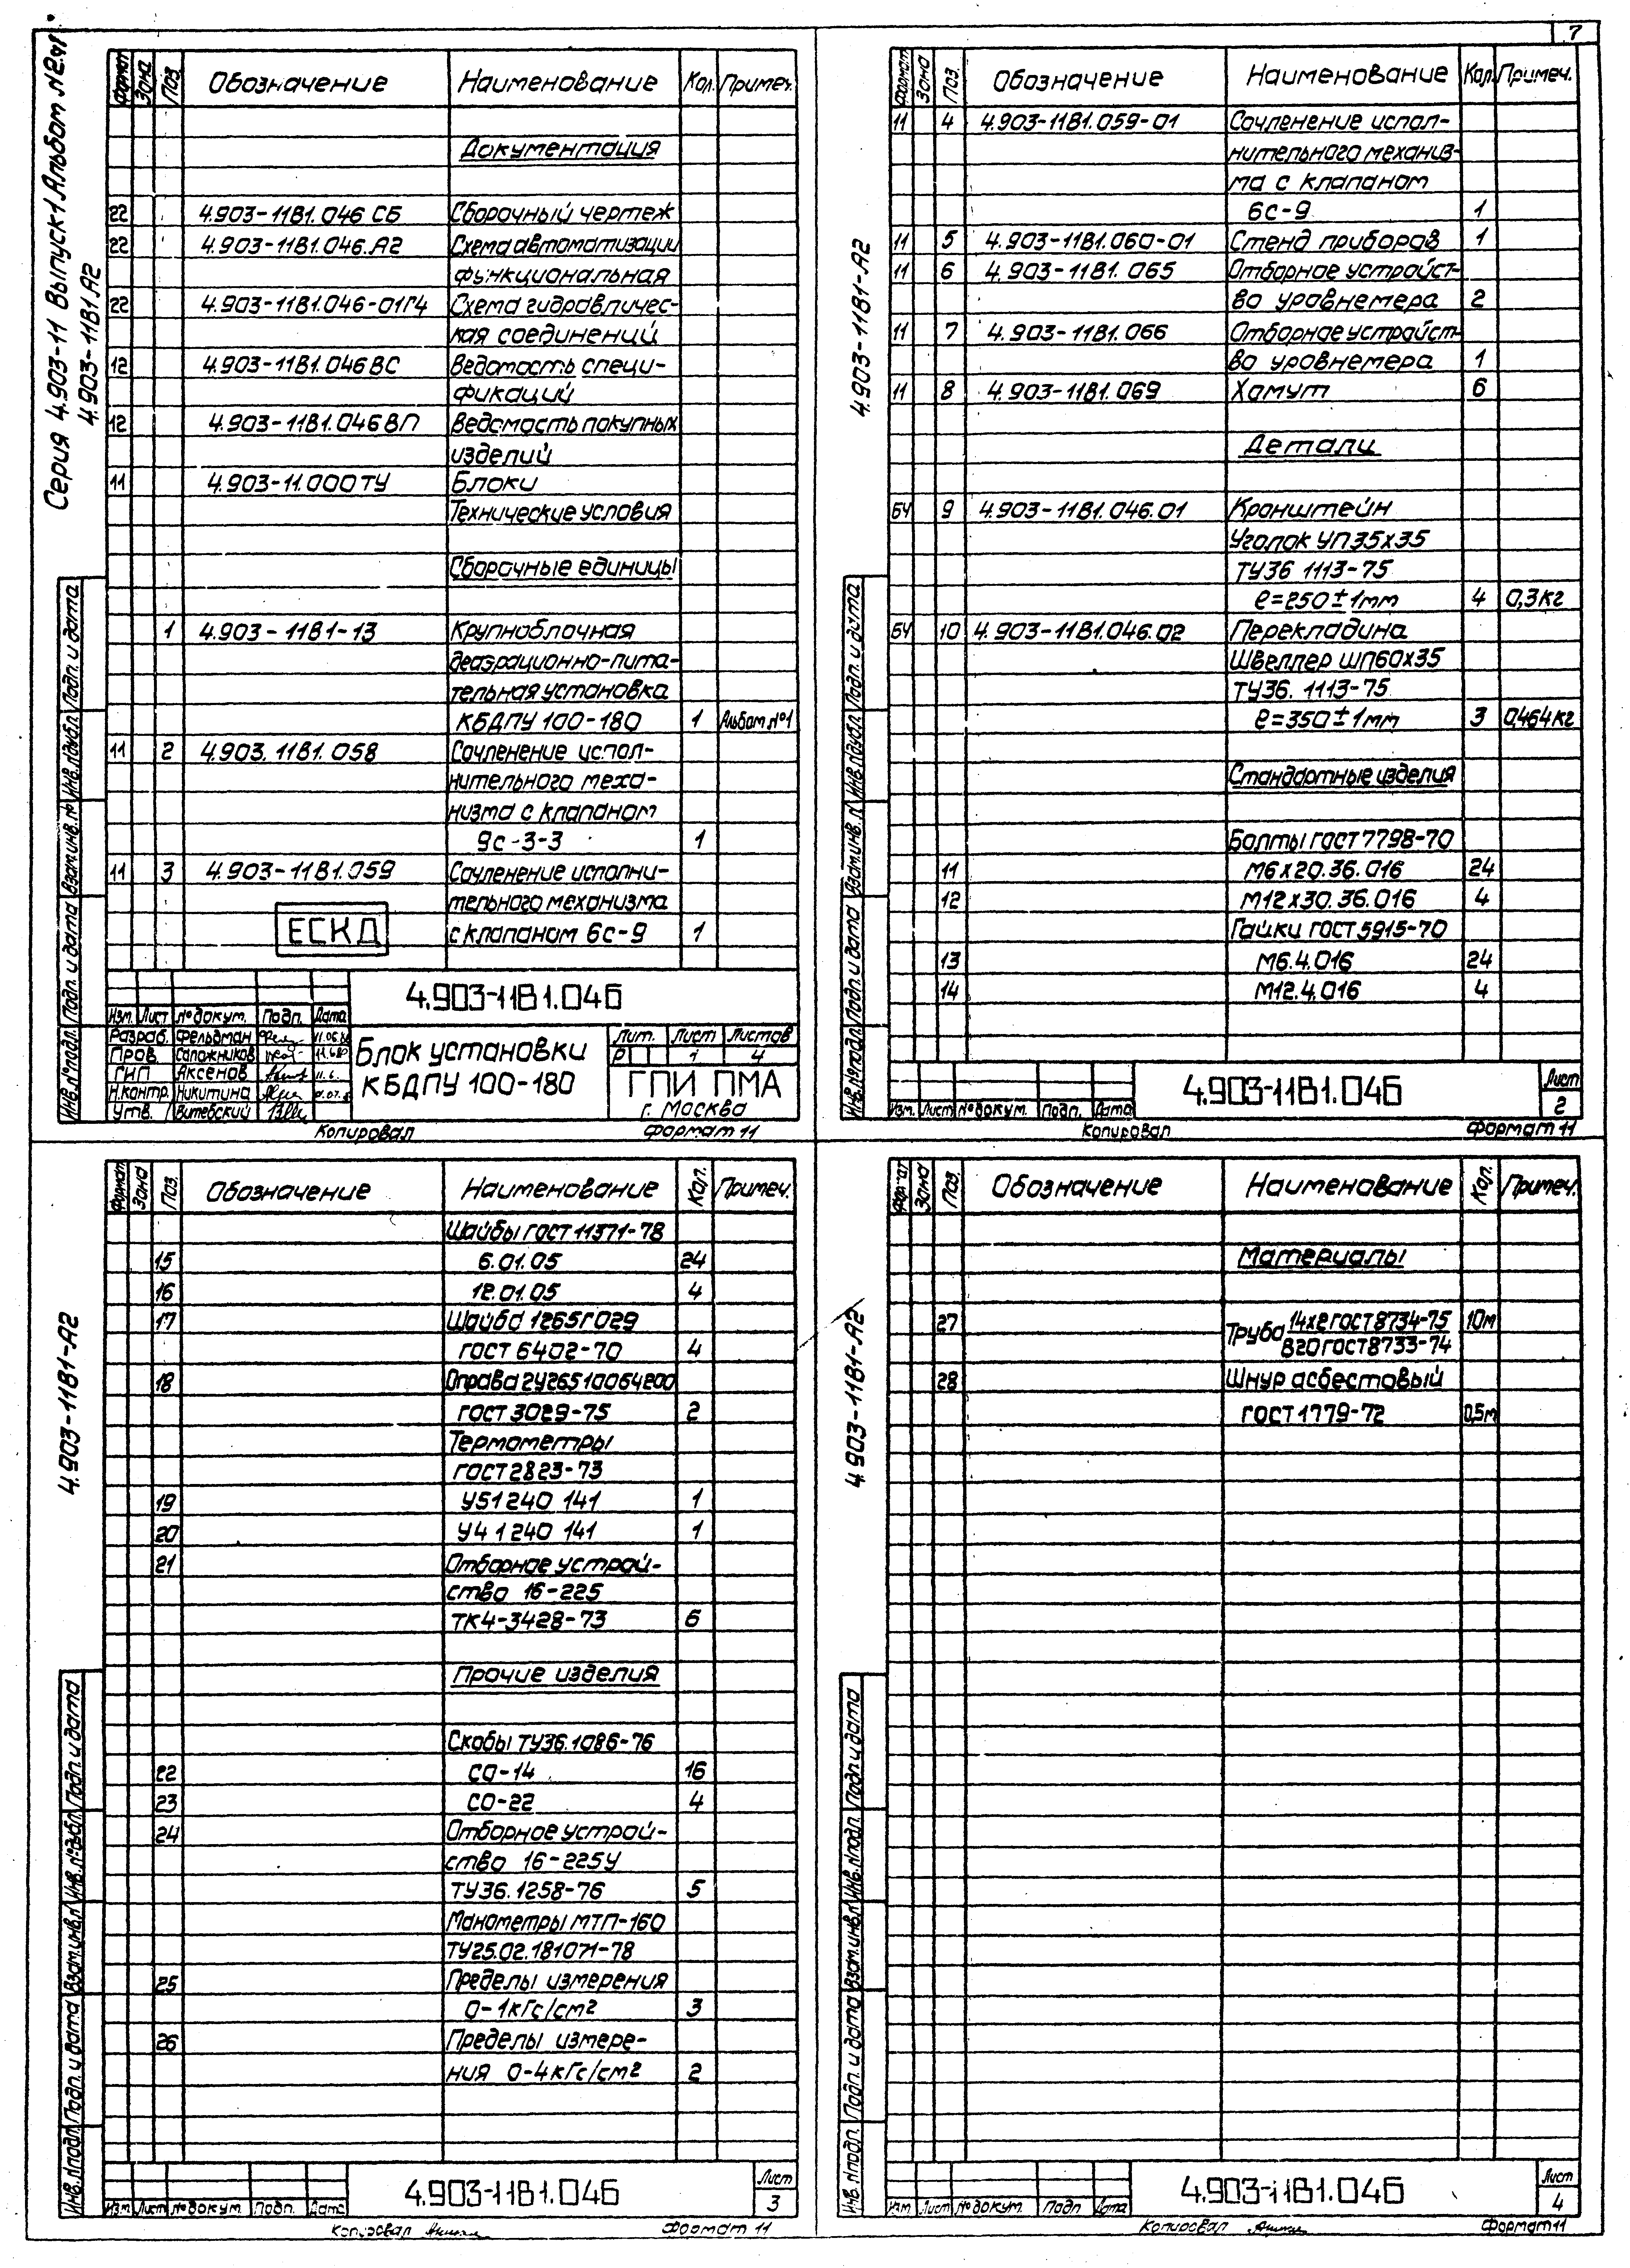 7
Серия 4.903-11 Выпуск 1 Альбом №2
4.903-11В1.А2
Формат Зона Поз. Обозначение Наименование Кол. Примеч.
Документация
22 4.903-11В1.046 СБ Сборочный чертеж
22 4.903-11В1.046.А2 Схема автоматизации
функциональная
22 4.903-11В1.046-01Г4 Схема гидравличес-
кая соединений
12 4.903-11В1.046ВС Ведомость специ-
фикаций
12 4.903-11В1.046ВП Ведомость покупных
изделий
11 4.903-11.000ТУ Блоки
Технические условия
Сборочные единицы
1 4.903-11В1-13 Крупноблочная
деаэрационно-пита-
тельная установка
КБДПУ 100-180 1 Альбом №1
11 2 4.903.11В1.058 Сочленение испол-
нительного меха-
низма с клапаном
9с-3-3 1
11 3 4.903-11В1.059 Сочленение исполни-
тельного механизма
с клапаном 6с-9 1
ЕСКД
4.903-11В1.046
Изм. Лист № докум. Подп. Дата
Разраб. Фельдман
Пров. Сапожников
ГИП Аксенов
Н.контр. Никитина
Утв. Витебский
Блок установки
КБДПУ 100-180
Лит. Лист Листов
Р 1 4
ГПИ ПМА
г. Москва
Инв.№подл. Подп. и дата Взам.инв.№ Инв.№дубл. Подп. и дата
Копировал Формат 11
4.903-11В1-А2
Формат Зона Поз. Обозначение Наименование Кол. Примеч.
11 4 4.903-11В1.059-01 Сочленение испол-
нительного механиз-
ма с клапаном
6с-9 1
11 5 4.903-11В1.060-01 Стенд приборов 1
11 6 4.903-11В1.065 Отборное устройст-
во уровнемера 2
11 7 4.903-11В1.066 Отборное устройст-
во уровнемера 1
11 8 4.903-11В1.069 Хомут 6
Детали
БЧ 9 4.903-11В1.046.01 Кронштейн
Уголок УП35х35
ТУ36 1113-75
ℓ=250±1мм 4 0,3кг
БЧ 10 4.903-11В1.046.02 Перекладина
Швеллер ШП60х35
ТУ36.1113-75
ℓ=350±1мм 3 0,464кг
Стандартные изделия
Болты ГОСТ7798-70
11 М6х20.36.016 24
12 М12х30.36.016 4
Гайки ГОСТ5915-70
13 М6.4.016 24
14 М12.4.016 4
4.903-11В1.046
Лист
2
Изм. Лист № докум. Подп. Дата
Инв.№подл. Подп. и дата Взам.инв.№ Инв.№дубл. Подп. и дата
Копировал Формат 11
4.903-11В1-А2
Формат Зона Поз. Обозначение Наименование Кол. Примеч.
Шайбы ГОСТ11371-78
15 6.01.05 24
16 12.01.05 4
17 Шайба 1265Г029
ГОСТ 6402-70 4
18 Оправа 2У26510064200
ГОСТ 3029-75 2
Термометры
ГОСТ2823-73
19 У51 240 141 1
20 У4 1 240 141 1
21 Отборное устрой-
ство 16-225
ТК4-3428-73 6
Прочие изделия
Скобы ТУ36.1086-76
22 СО-14 16
23 СО-22 4
24 Отборное устрой-
ство 16-225У
ТУ36.1258-76 5
Манометры МТП-160
ТУ25.02.181071-78
25 Пределы измерения
0-1кГс/см² 3
26 Пределы измере-
ния 0-4кГс/см² 2
4.903-11В1.046
Лист
3
Изм. Лист № докум. Подп. Дата
Инв.№подл. Подп. и дата Взам.инв.№ Инв.№дубл. Подп. и дата
Копировал Формат 11
4.903-11В1-А2
Формат Зона Поз. Обозначение Наименование Кол. Примеч.
Материалы
27 Труба 14х2 ГОСТ8734-75 10м
В20 ГОСТ8733-74
28 Шнур асбестовый
ГОСТ1779-72 0,5м
4.903-11В1.046
Лист
4
Изм. Лист № докум. Подп. Дата
Инв.№подл. Подп. и дата Взам.инв.№ Инв.№подл. Подп. и дата
Копировал Формат 11